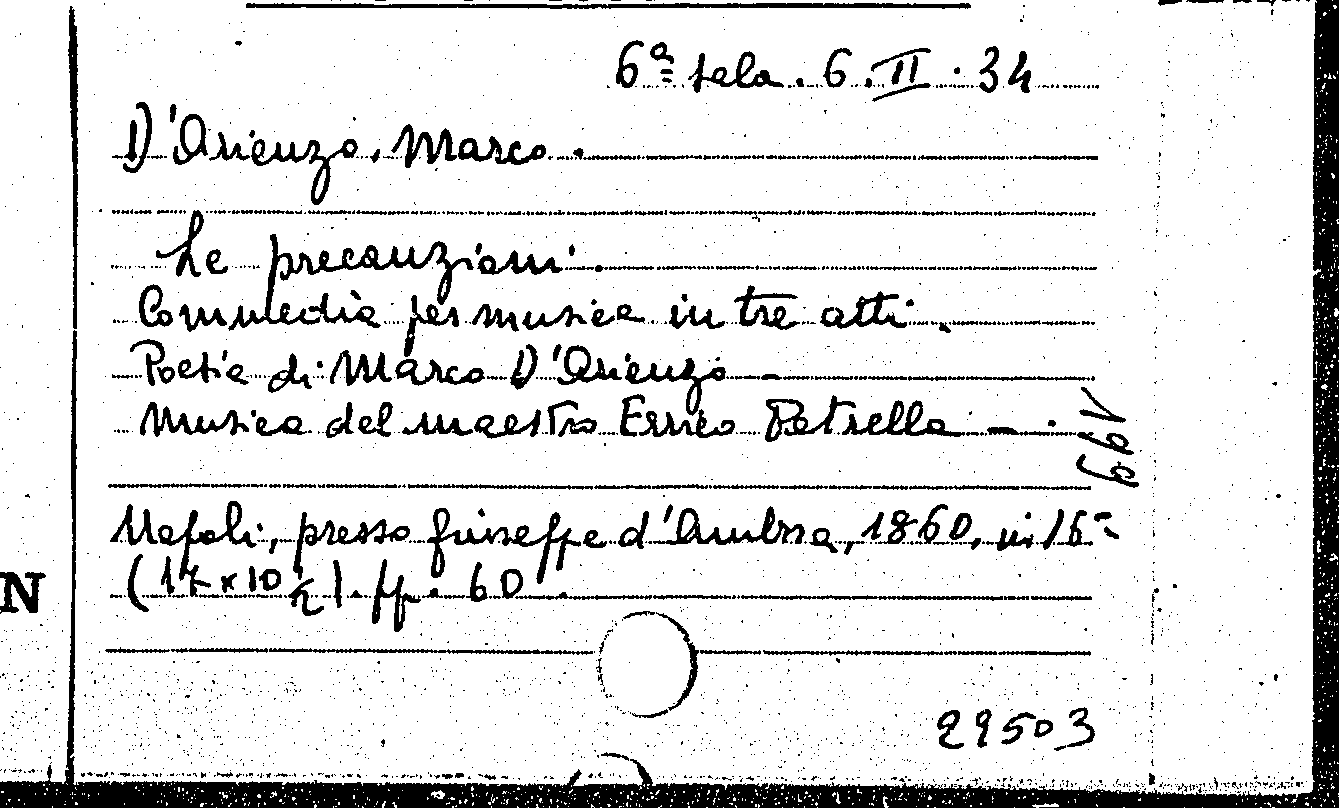 6ª sala. 6. II. 34
D'Arienzo, Marco.
Le precauzioni.
Commedia per musica in tre atti.
Poesia di Marco D'Arienzo -
Musica del maestro Errico Petrella - .
199
Napoli, presso Giuseppe d'Ambra, 1860, in 16º
(17 x 10 ½). pp. 60.
N
29503